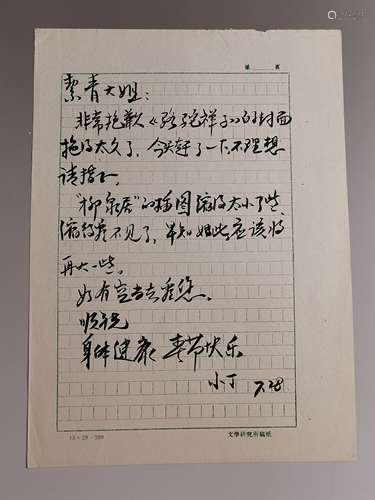 第 頁
絜青大姐：
非常抱歉《骆驼祥子》的封面
拖得太久了，今天 了一下不理想
请指正。
“柳泉居”的插图缩得太小了些，
缩得看不见了，早知如此应该将
再大一些。
有空当去看您。
顺祝
身体健康 春节快乐
小丁
文學研究所稿紙